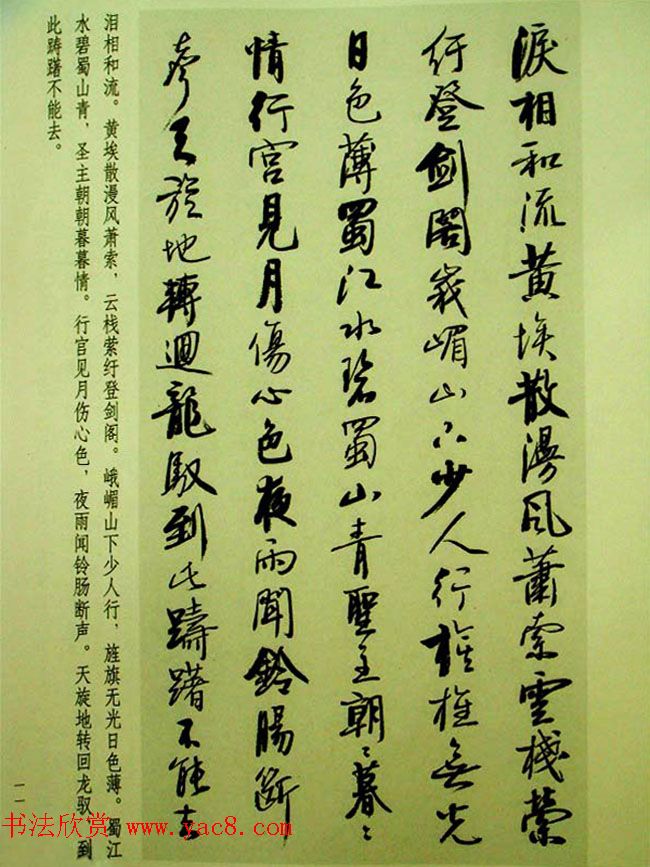 淚相和流黃埃散漫風蕭索雲棧縈
紆登劍閣峩嵋山下少人行旌旗無光
日色薄蜀江水碧蜀山青聖主朝〻暮〻
情行宮見月傷心色夜雨聞鈴腸斷
聲天旋地轉迴龍馭到此躊躇不能去
泪相和流。黄埃散漫风萧索，云栈萦纡登剑阁。峨嵋山下少人行，旌旗无光日色薄。蜀江
水碧蜀山青，圣主朝朝暮暮情。行宫见月伤心色，夜雨闻铃肠断声。天旋地转回龙驭，到
此踌躇不能去。
一一
书法欣赏 www.yac8.com